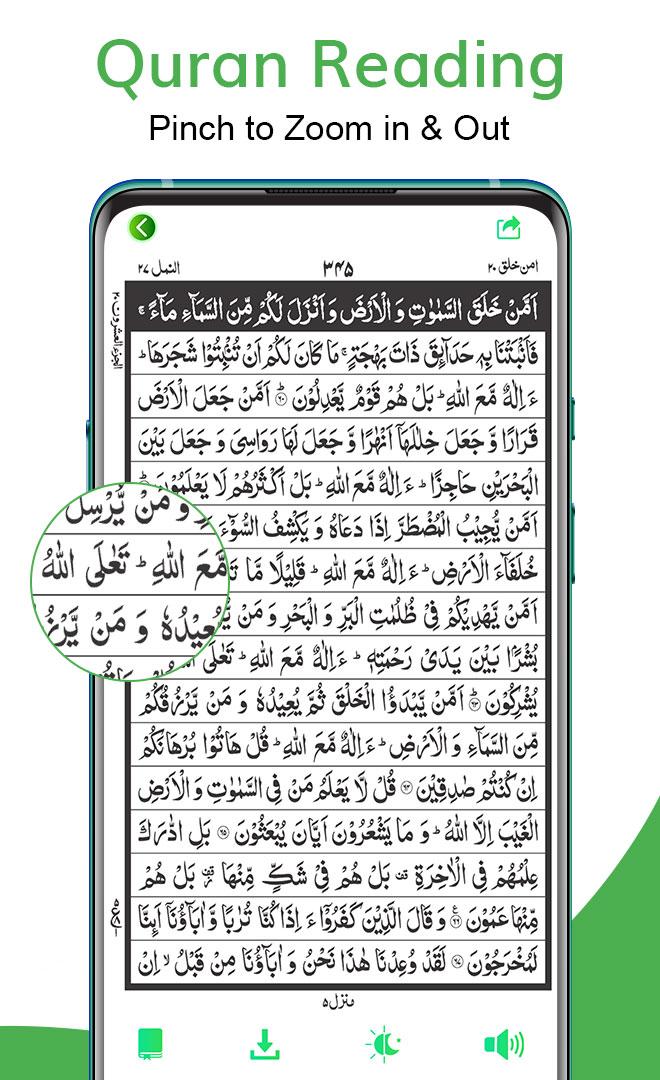 Quran Reading
Pinch to Zoom in & Out
امن خلق ۲۰
۳۴۵
النمل ۲۷
اَمَّنْ خَلَقَ السَّمٰوٰتِ وَ الْاَرْضَ وَ اَنْزَلَ لَكُمْ مِّنَ السَّمَآءِ مَآءً ۚ
فَاَنْۢبَتْنَا بِهٖ حَدَآئِقَ ذَاتَ بَهْجَةٍ ۚ مَا كَانَ لَكُمْ اَنْ تُنْۢبِتُوْا شَجَرَهَا ؕ
ءَ اِلٰهٌ مَّعَ اللّٰهِ ؕ بَلْ هُمْ قَوْمٌ يَّعْدِلُوْنَ ۶۰ اَمَّنْ جَعَلَ الْاَرْضَ
قَرَارًا وَّ جَعَلَ خِلٰلَهَاۤ اَنْهٰرًا وَّ جَعَلَ لَهَا رَوَاسِيَ وَ جَعَلَ بَيْنَ
الْبَحْرَيْنِ حَاجِزًا ؕ ءَ اِلٰهٌ مَّعَ اللّٰهِ ؕ بَلْ اَكْثَرُهُمْ لَا يَعْلَمُوْنَ
اَمَّنْ يُّجِيْبُ الْمُضْطَرَّ اِذَا دَعَاهُ وَ يَكْشِفُ السُّوْٓءَ
خُلَفَآءَ الْاَرْضِ ؕ ءَ اِلٰهٌ مَّعَ اللّٰهِ ؕ قَلِيْلًا مَّا
اَمَّنْ يَّهْدِيْكُمْ فِيْ ظُلُمٰتِ الْبَرِّ وَ الْبَحْرِ وَ مَنْ
بُشْرًۢا بَيْنَ يَدَيْ رَحْمَتِهٖ ؕ ءَ اِلٰهٌ مَّعَ اللّٰهِ ؕ تَعٰلَى
يُشْرِكُوْنَ ۶۳ اَمَّنْ يَّبْدَؤُا الْخَلْقَ ثُمَّ يُعِيْدُهٗ وَ مَنْ يَّرْزُقُكُمْ
مِّنَ السَّمَآءِ وَ الْاَرْضِ ؕ ءَ اِلٰهٌ مَّعَ اللّٰهِ ؕ قُلْ هَاتُوْا بُرْهَانَكُمْ
اِنْ كُنْتُمْ صٰدِقِيْنَ ۶۴ قُلْ لَّا يَعْلَمُ مَنْ فِي السَّمٰوٰتِ وَ الْاَرْضِ
الْغَيْبَ اِلَّا اللّٰهُ ؕ وَ مَا يَشْعُرُوْنَ اَيَّانَ يُبْعَثُوْنَ ۶۵ بَلِ ادّٰرَكَ
عِلْمُهُمْ فِي الْاٰخِرَةِ بَلْ هُمْ فِيْ شَكٍّ مِّنْهَا بَلْ هُمْ
مِّنْهَا عَمُوْنَ ۶۶ وَ قَالَ الَّذِيْنَ كَفَرُوْۤا ءَ اِذَا كُنَّا تُرٰبًا وَّ اٰبَآؤُنَاۤ اَئِنَّا
لَمُخْرَجُوْنَ ۶۷ لَقَدْ وُعِدْنَا هٰذَا نَحْنُ وَ اٰبَآؤُنَا مِنْ قَبْلُ ۙ اِنْ
وَ مَنْ يُّرْسِلُ
مَّعَ اللّٰهِ ؕ تَعٰلَى اللّٰهُ
يُعِيْدُهٗ وَ مَنْ يَّرْزُ
منزل ۵